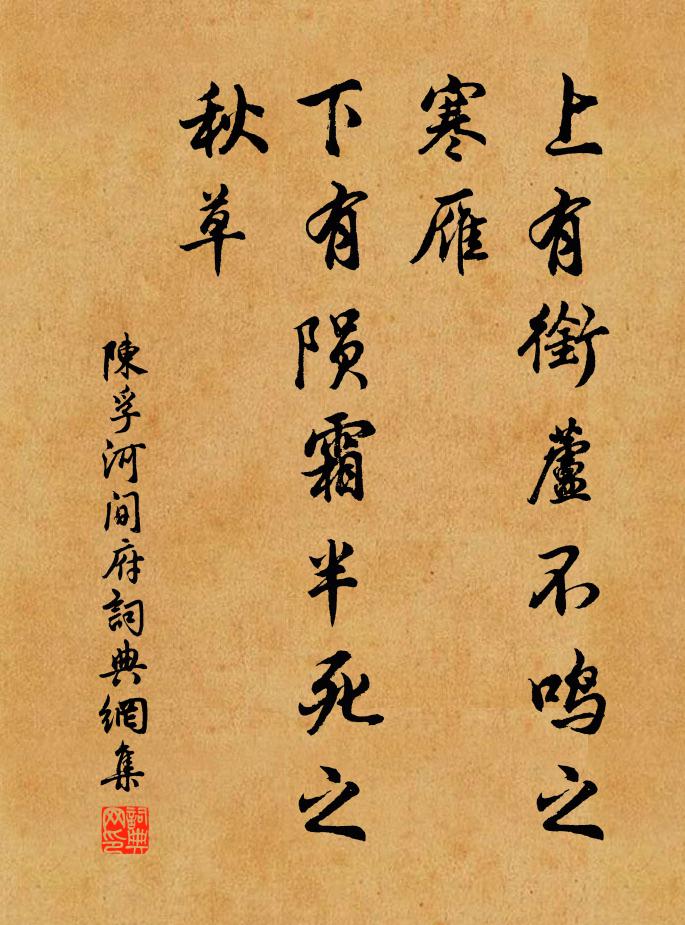 上有銜蘆不鸣之
寒雁
下有陨霜半死之
秋草
陳孚河间府詞典網集
詞典网印